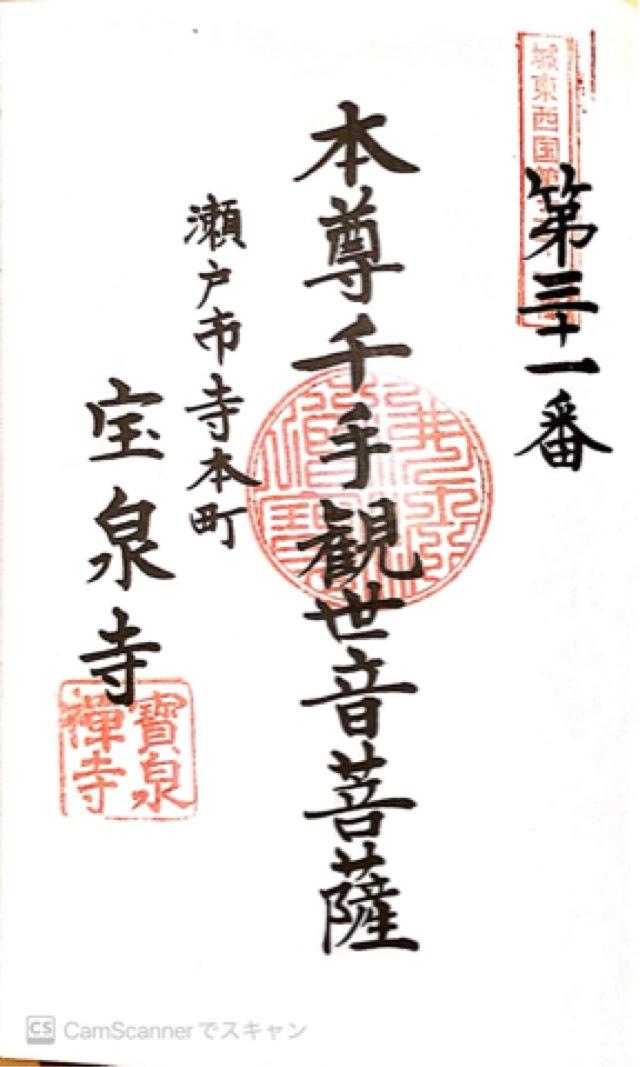 城東西国第
第三十一番
本尊千手観世音菩薩
瀬戸市寺本町
宝泉寺
寶泉
禅寺
CS CamScannerでスキャン